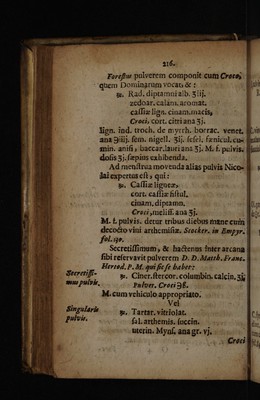 216.
Forestus pulverem componit cum Croco,
quem Dominarum vocat, & :
℞. Rad. diptamni alb. ʒiij.
zedoar. calam. aromat.
cassiæ lign. cinam. macis,
Croci, cort. citri ana ʒj.
lign. ind. troch. de myrrh. borrac. venet.
ana ℈iiij. sem. nigell. ʒij. sesel. fœnicul. cu-
min. anisi, baccar. lauri ana ʒj. M. f. pulvis.
dosis ʒj. sæpius exhibenda.
Ad menstrua movenda alias pulvis Nico-
lai expertus est, qui :
℞. Cassiæ ligneæ,
cort. cassiæ fistul.
cinam. diptamn.
Croci, meliss. ana ʒj.
M. f. pulvis. detur tribus diebus mane cum
decocto vini arthemisiæ. Stocker. in Empyr.
fol. 190.
Secretissimum, & hactenus inter arcana
sibi reservavit pulverem D. D. Matth. Franc.
Hertod, P. M. qui sic se habet :
Secretissi-
mus pulvis.
℞. Ciner. stercor. columbin. calcin. ʒß
Pulver. Croci ℈ß.
M. cum vehiculo appropriato.
Vel
Singularis
pulvis.
℞. Tartar. vitriolat.
sal. arthemis. succin.
uterin. Myns. ana gr. vj.
Croci